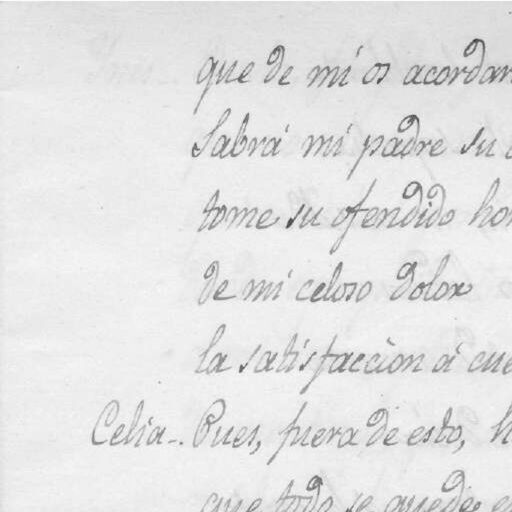 que de mi os acordar
Sabrá mi padre su
tome su ofendido ho
de mi celoso dolor
la satisfaccion á cue
Celia-. Pues, fuera de esto, h
que todo se quede e